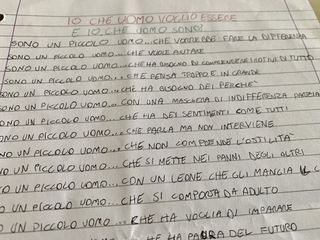 IO CHE UOMO VOGLIO ESSERE
E IO, CHE UOMO SONO?
SONO UN PICCOLO UOMO...CHE VORREBBE FARE LA DIFFERENZA
SONO UN PICCOLO UOMO...CHE VUOLE AIUTARE
SONO UN PICCOLO UOMO...CHE HA BISOGNO DI COMPRENDERE I MOTIVI DI TUTTO
SONO UN PICCOLO UOMO...CHE PENSA TROPPO E IN GRANDE
SONO UN PICCOLO UOMO...CHE HA BISOGNO DEI PERCHE'
SONO UN PICCOLO UOMO...CON UNA MASCHERA DI INDIFFERENZA
SONO UN PICCOLO UOMO...CHE HA DEI SENTIMENTI COME TUTTI
ONO UN PICCOLO UOMO...CHE PARLA MA NON INTERVIENE
NO UN PICCOLO UOMO...CHE NON COMPRENDE L'OSTILITÀ
NO UN PICCOLO UOMO...CHE SI METTE NEI PANNI DEGLI ALTRI
O UN PICCOLO UOMO...CON UN LEONE CHE GLI MANGIA IL
UN PICCOLO UOMO...CHE SI COMPORTA DA ADULTO
UN PICCOLO UOMO...CHE HA VOGLIA DI IMPARARE
PICCOLO UOMO...CHE HA PAURA DEL FUTURO